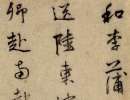 和李蒲
送陸東
卿赴南